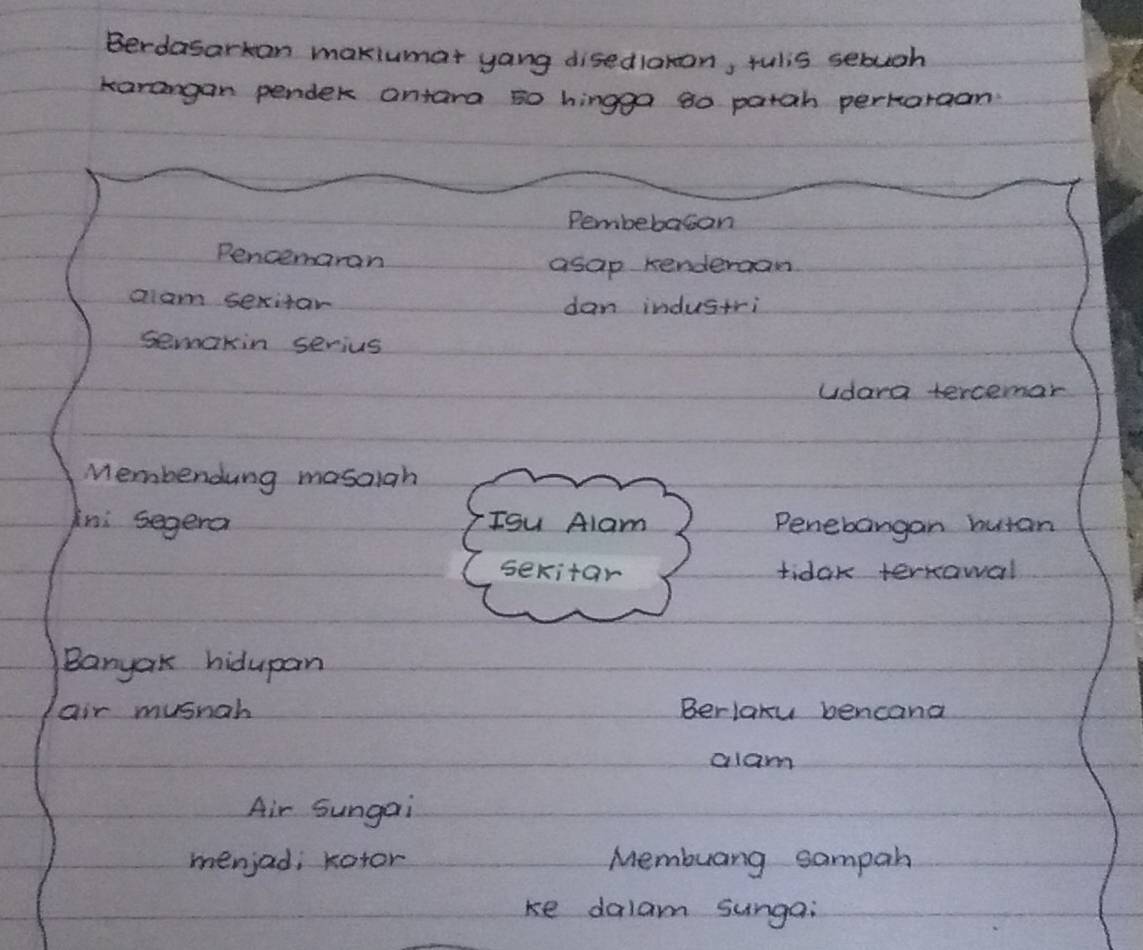 Berdasarkan maklumat yang disediakan, tulis sebuah
karangan pendek antara 50 hingga 80 patah perkataan.
Pencemaran
alam sekitar
semakin serius
Pembebasan
asap kenderaan
dan industri
Udara tercemar
Membendung masalah
ini segera
Isu Alam
sekitar
Penebangan hutan
tidak terkawal
Banyak hidupan
air musnah
Berlaku bencana
alam
Air sungai
menjadi kotor
Membuang sampah
ke dalam sungai